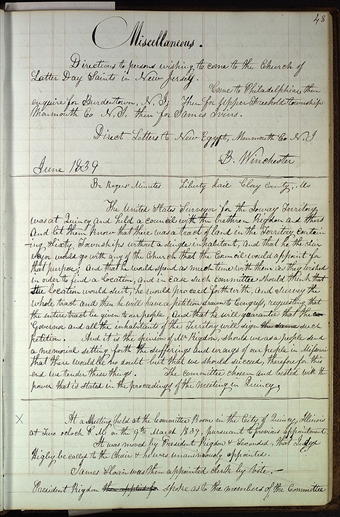 48
Miscellaneous.
Directions to persons wishing to come to the Church of
Latter Day Saints in New Jersey.
Come to Philadelphia, then
enquire for Burdentown, N. J; Then for Upper Freehold township
Monmouth Co N. J. then for James Ivins.
Direct Letters to New Egypt, Monmouth Co N. J
B. Winchester
June 1839
Dr Rogers Minutes Liberty Jail Clay County, Mo
The United States Surveyor for the Ioway Territory,
was at Quincy and held a council with the brethren Rigdon and others
And let them know that there was a tract of land in the Territory contain-
ing, Sixty Townships without a single inhabitant, And that he the Sur-
veyor would go with any of the Church that the Council would appoint for
that purpose; And that he would spend as much time with them as they wished
in order to find a Location, And in case such committee should think that
the Location would suit, he would proceed forthwith, and survey the
whole tract and then he will have a petition drawn to Congress, requesting that
the entire tract be given to our people, And that he will guarantee that the
Governor and all the inhabitants of the Territory will sign such
petition. And it is the opinion of Mr Rigdon, should we as a people send
a memorial setting forth the sufferings and wrongs of our people in Missouri
that there would be no doubt but that we should succeed, therefore for this
end we tender these things. The committee chosen and vested with the
power that is stated in the proceedings of the meeting in Quincy,
X At a Meeting held at the Committee Room in the City of Quincy, Illinois
at Two oclock P. M. on the 9th March 1839, pursuant to previous appointment
It was moved by President Rigdon & Seconded, that Judge
Higby be called to the Chair & he was unanimously appointed.
James Sloan was then appointed clerk by Vote.—
President Rigdon spoke as to the members of the Committee